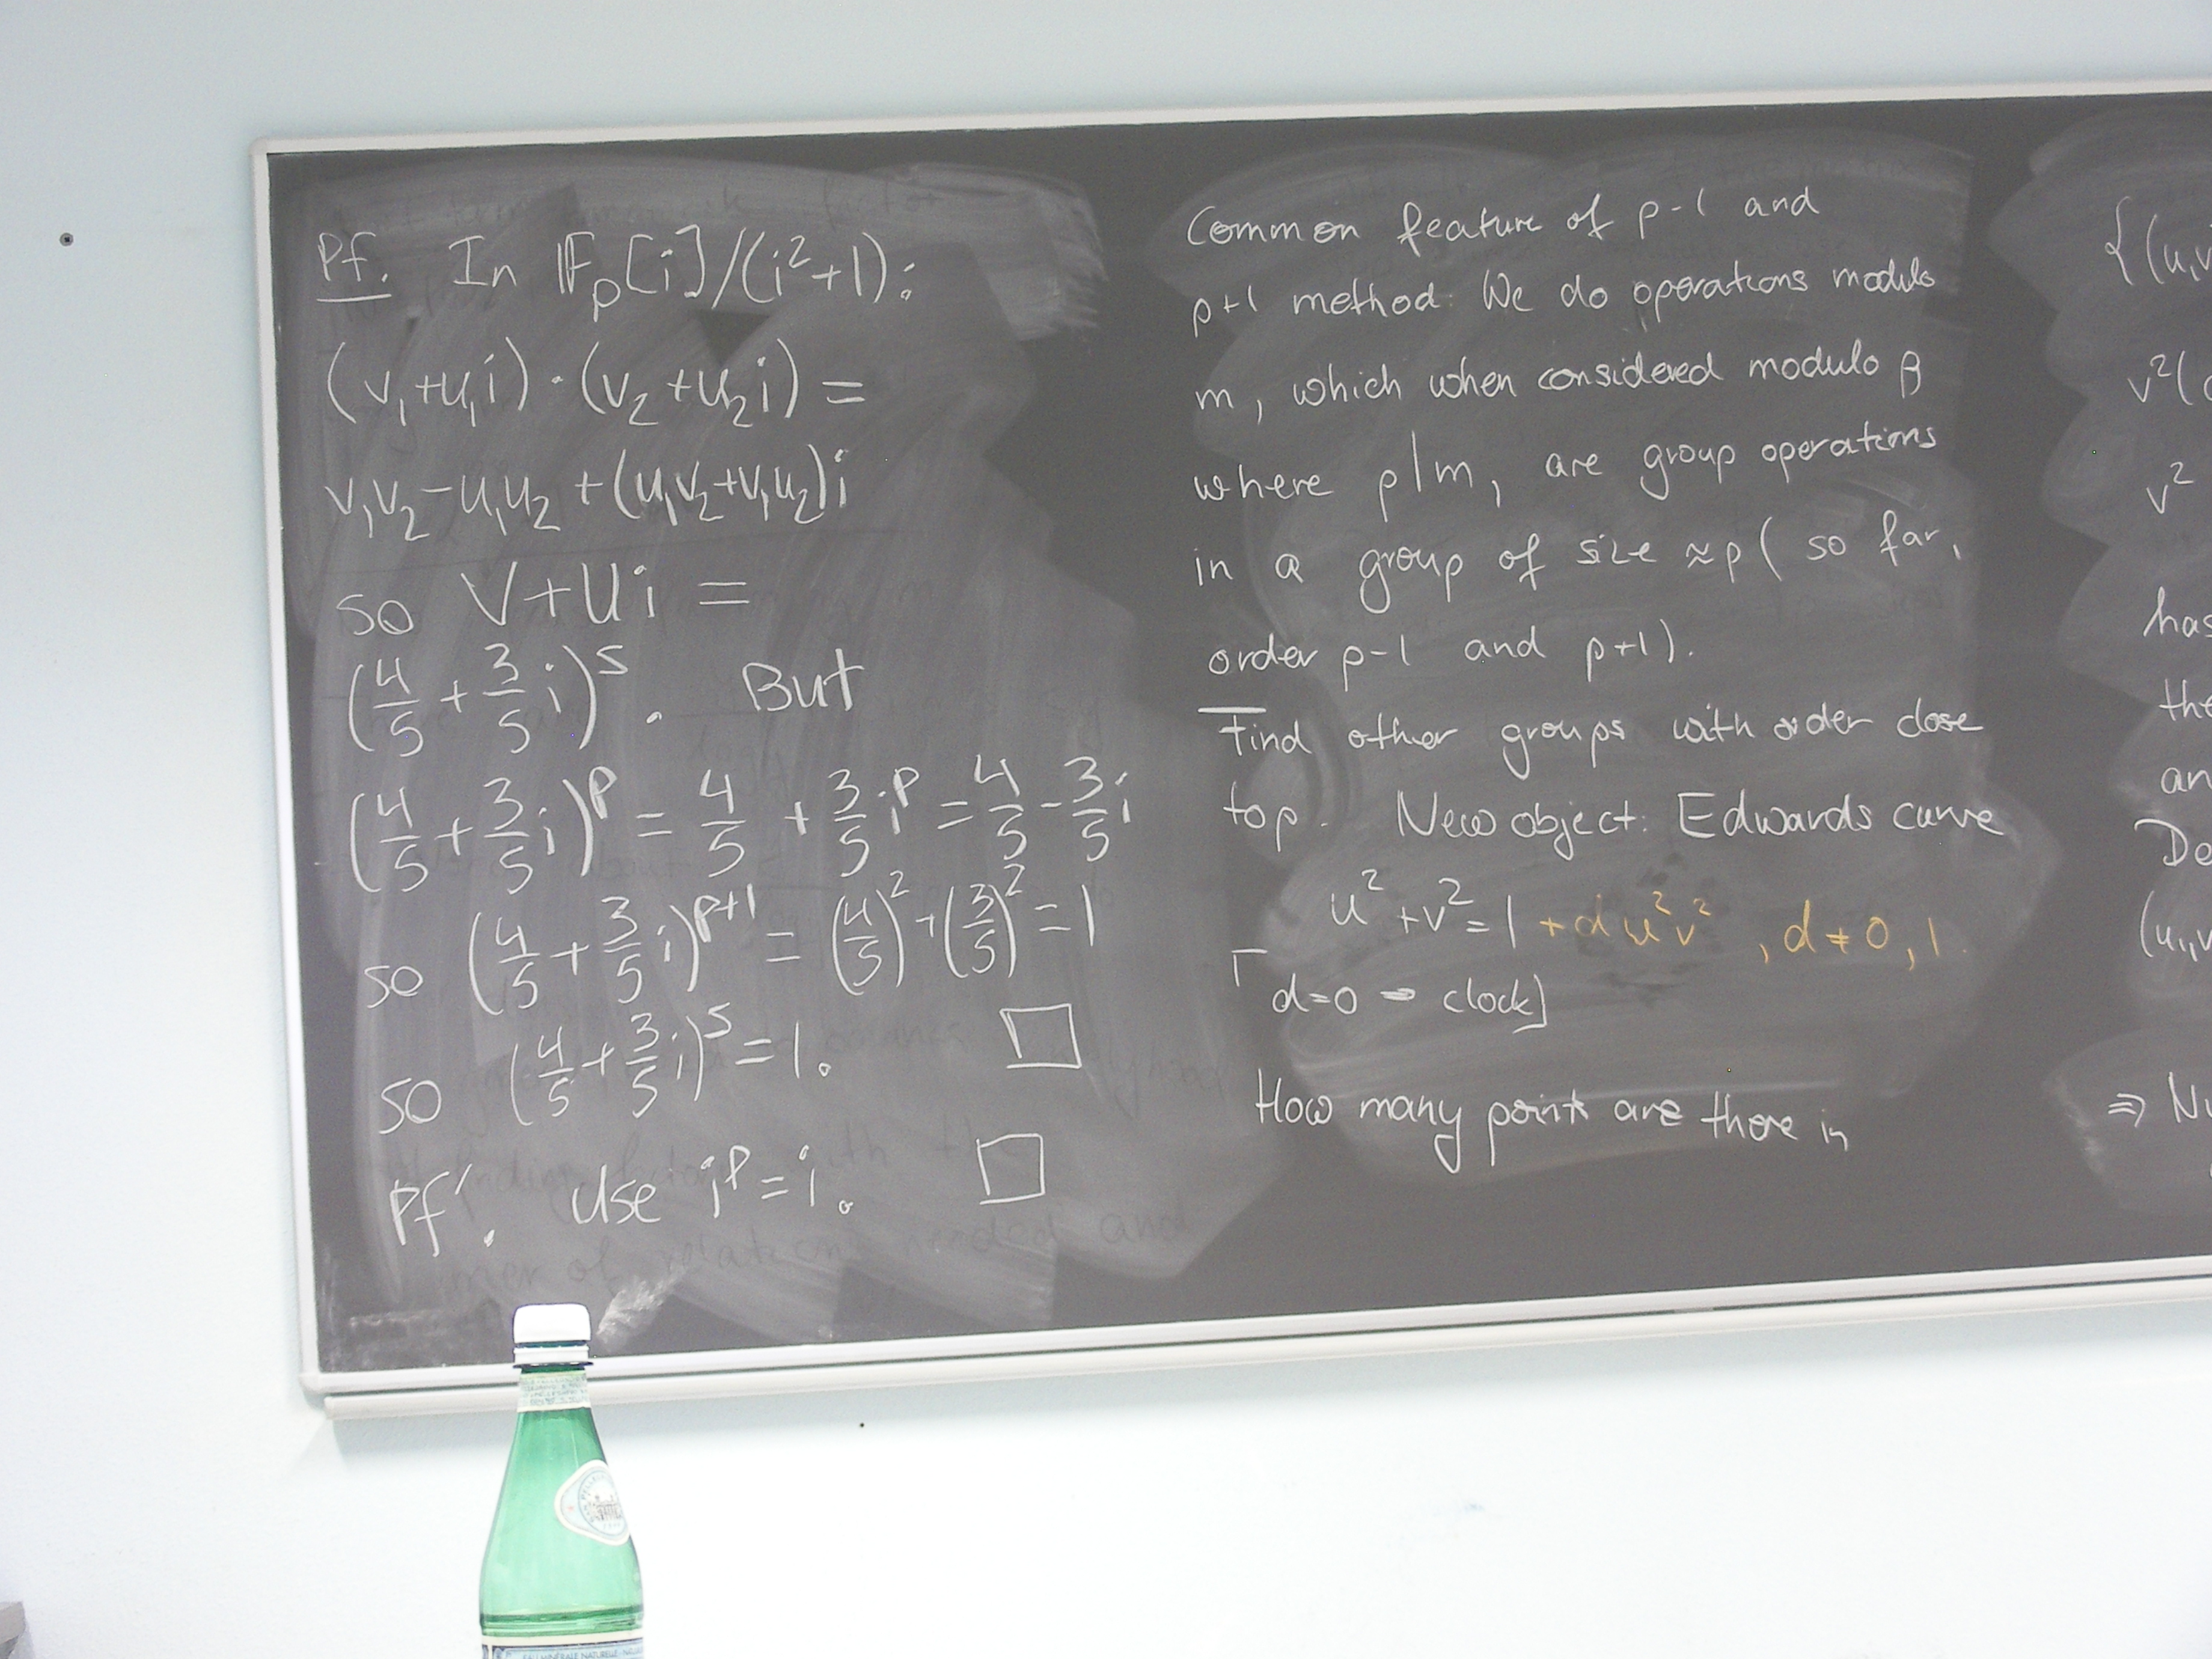 Pf. In 𝔽_p[i]/(i²+1):
(v₁+u₁i)·(v₂+u₂i) =
v₁v₂-u₁u₂+(u₁v₂+v₁u₂)i
so V+Ui =
(4/5+3/5 i)^s. But
(4/5+3/5 i)^p = 4/5 + 3/5 i^p = 4/5 - 3/5 i
so (4/5+3/5 i)^{p+1} = (4/5)²+(3/5)² = 1
so (4/5+3/5 i)^s = 1. □
Pf'. Use i^p = i. □
Common feature of p-1 and
p+1 method: We do operations modulo
m, which when considered modulo p
where p|m, are group operations
in a group of size ≈p (so far,
order p-1 and p+1).
Find other groups with order close
top. New object: Edwards curve
u²+v²=1+du²v², d≠0,1.
[d=0 - clock]
How many point are there in
{(u,v
v²(
v²
has
the
an
De
(u₁,v
⇒ Nu
EAU MINÉRALE NATURELLE